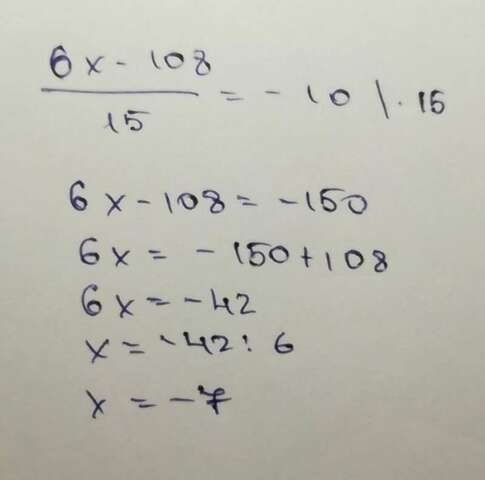 6x - 108
15 = - 10 | . 15
6x - 108 = -150
6x = - 150 + 108
6x = - 42
x = - 42 : 6
x = - 7